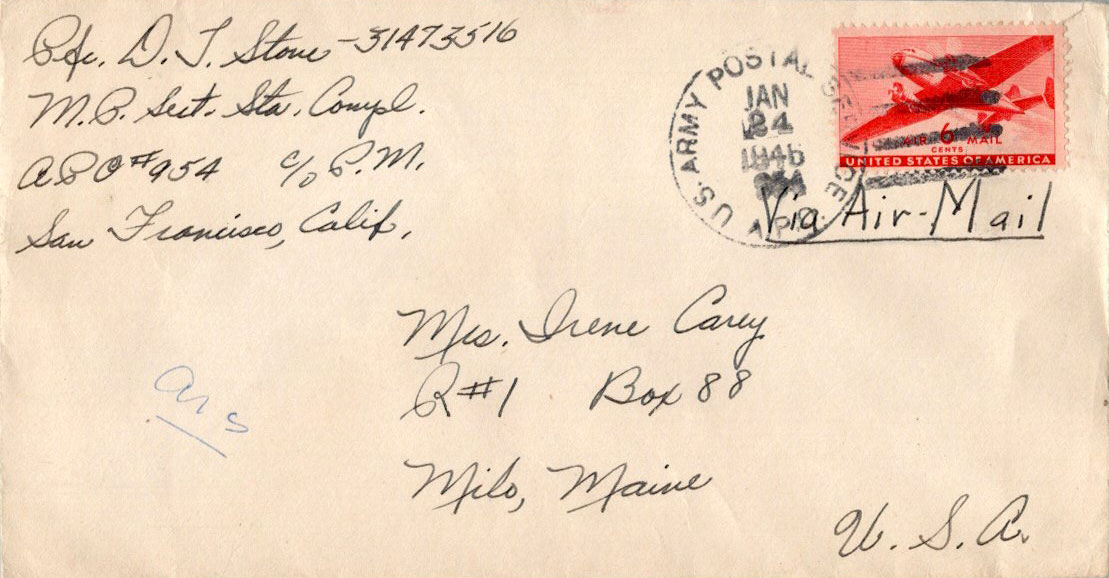 Pfc. D. T. Stone - 31473516
M.P. Sect. Sta. Compl.
A P O # 954 c/o P.M.
San Francisco, Calif.
U.S. ARMY POSTAL SERVICE
JAN
24
1946
A.P.O.
AIR 6 MAIL
CENTS
UNITED STATES OF AMERICA
Via Air-Mail
Mrs. Irene Carey
R #1 Box 88
Milo, Maine
U. S. A.
ans